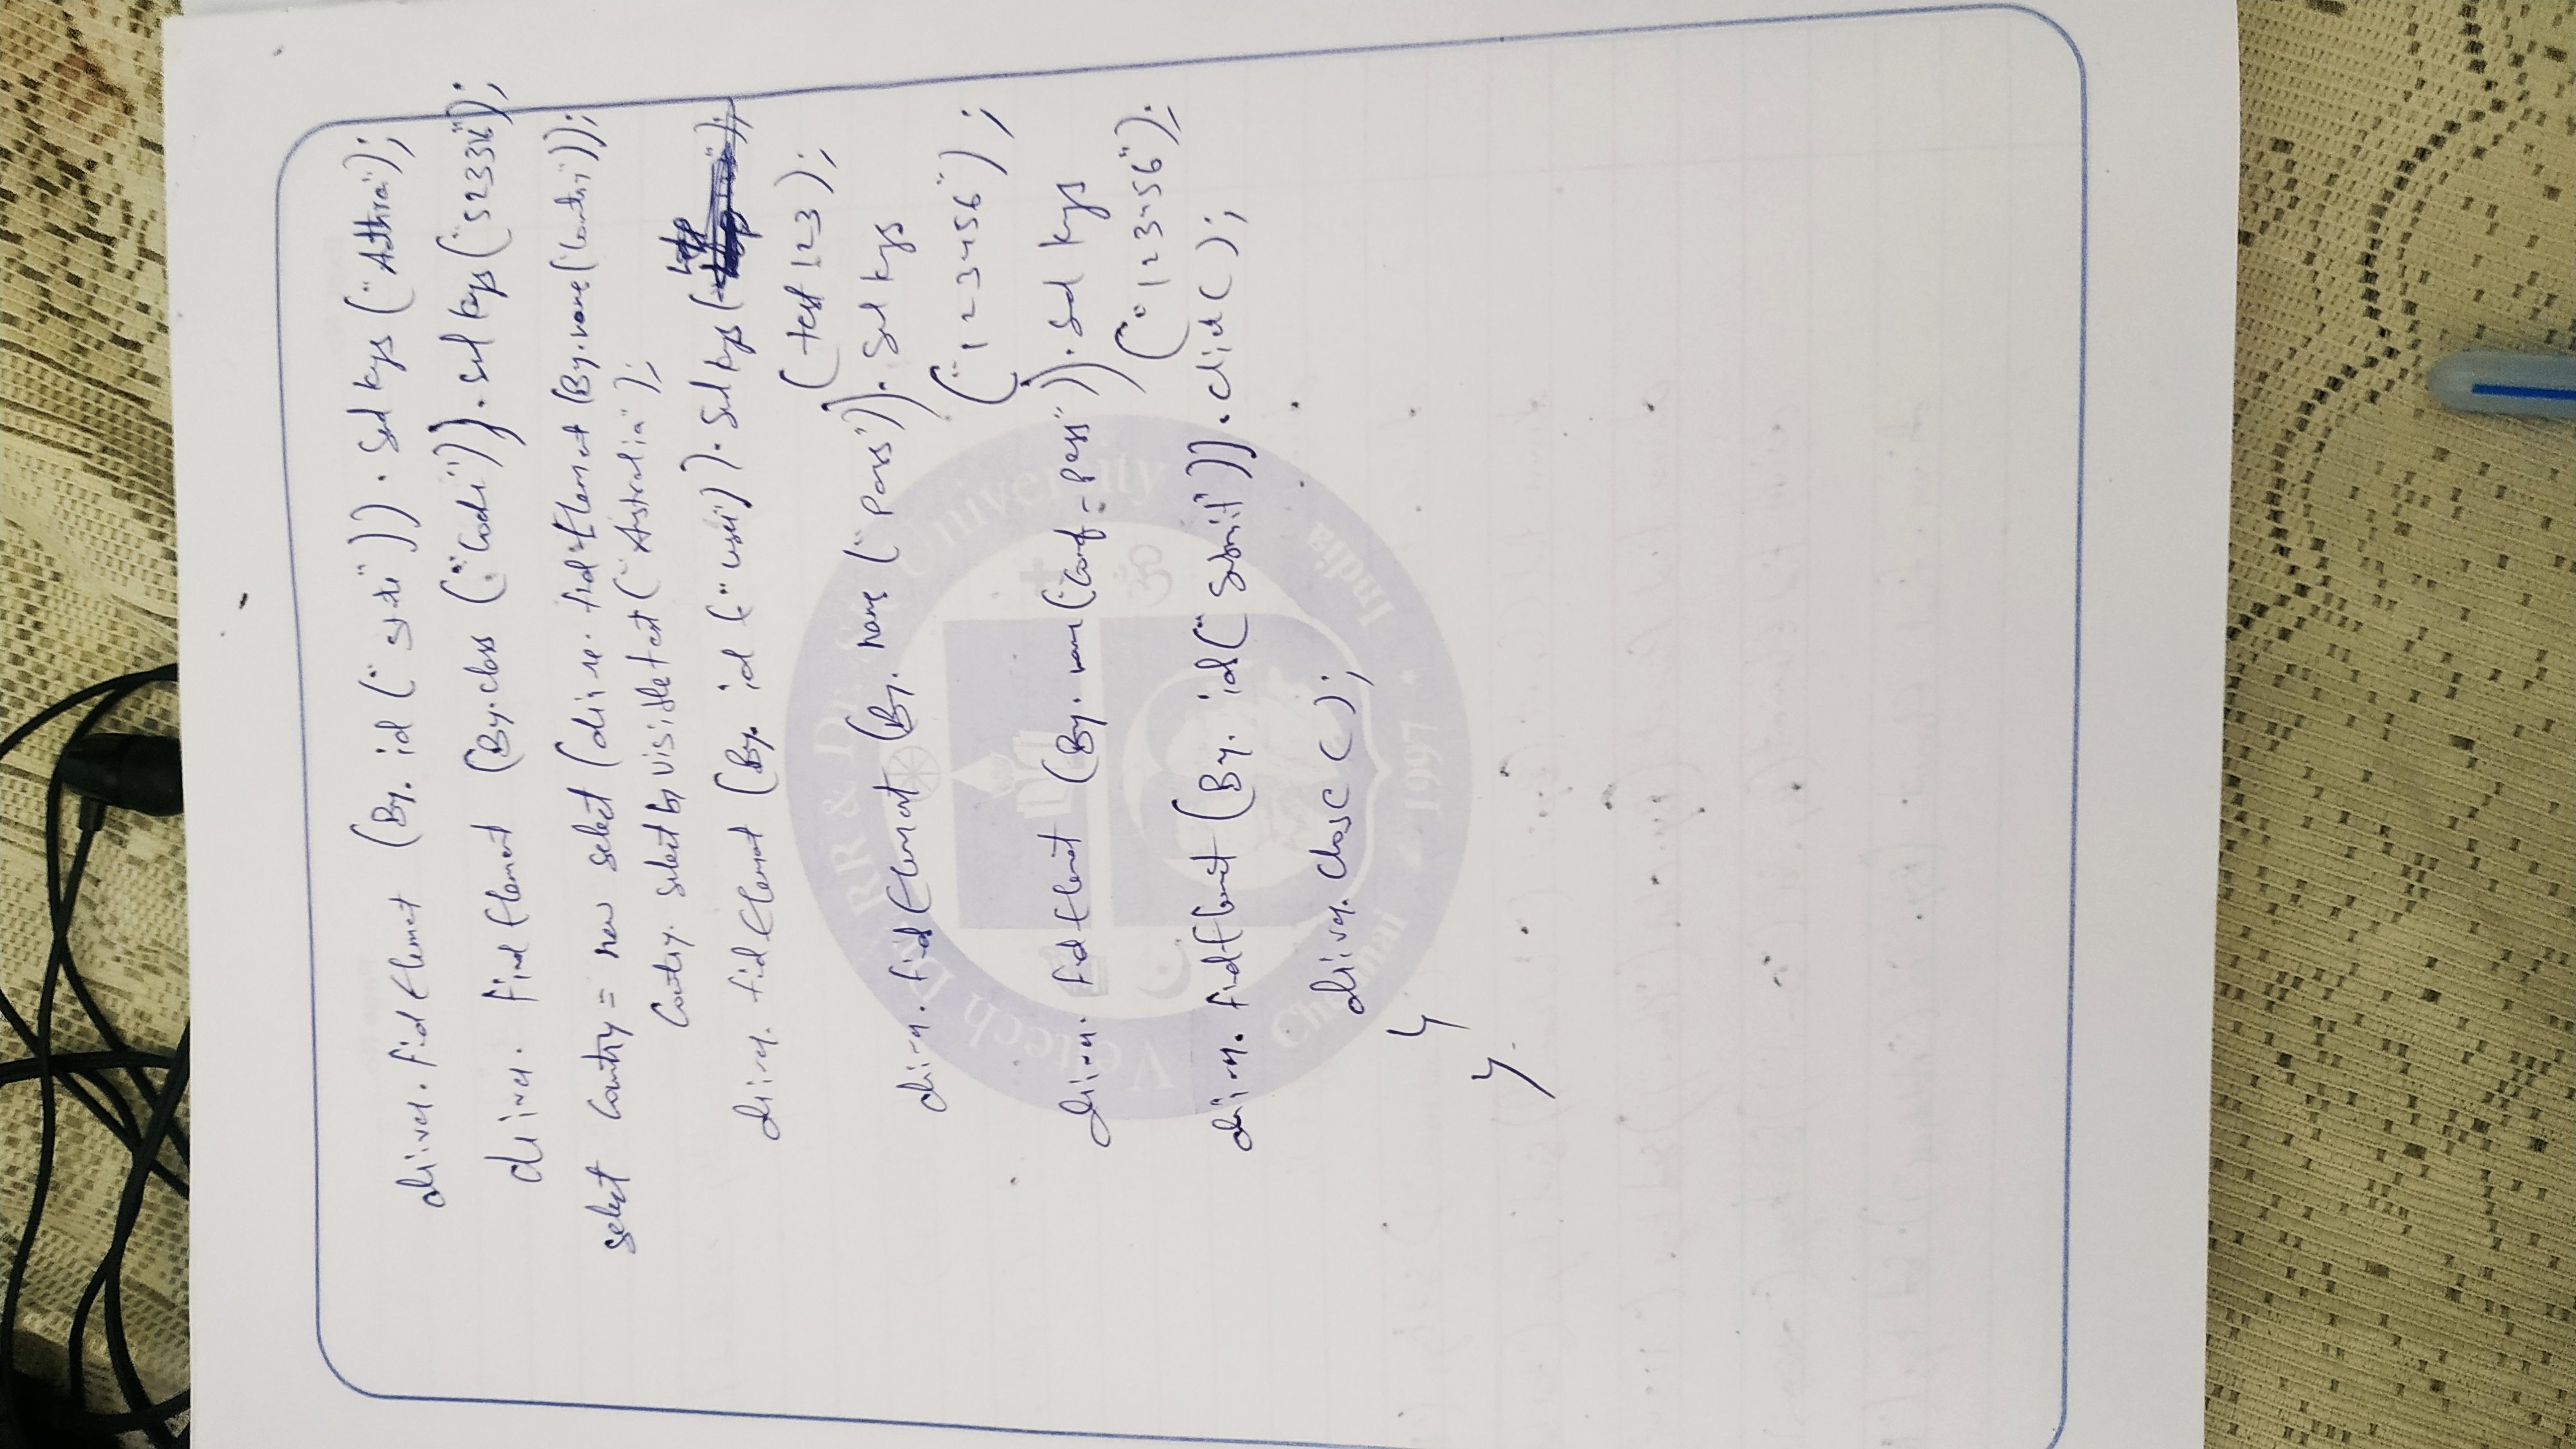 driver.findElement (By.id ("state")).Sendkeys ("Andhra");
driver.findElement (By.class ("Code")).Sendkeys("523316");
select Country = new select (driver.findElement (By.name("Country"));
Country.selectbyvisibletext("Australia");
driver.findElement (By.id ("user")).Sendkeys(
(test123);
driver.findElement (By.name ("Pass")).Sendkeys
("123456");
driver.findElement (By.name("Conf-Pass")).Sendkeys
("123456");
driver.findElement (By.id("Submit")).click();
driver.close();
}
}
Veltech Dr. RR & Dr. SR University
Chennai
India
1997